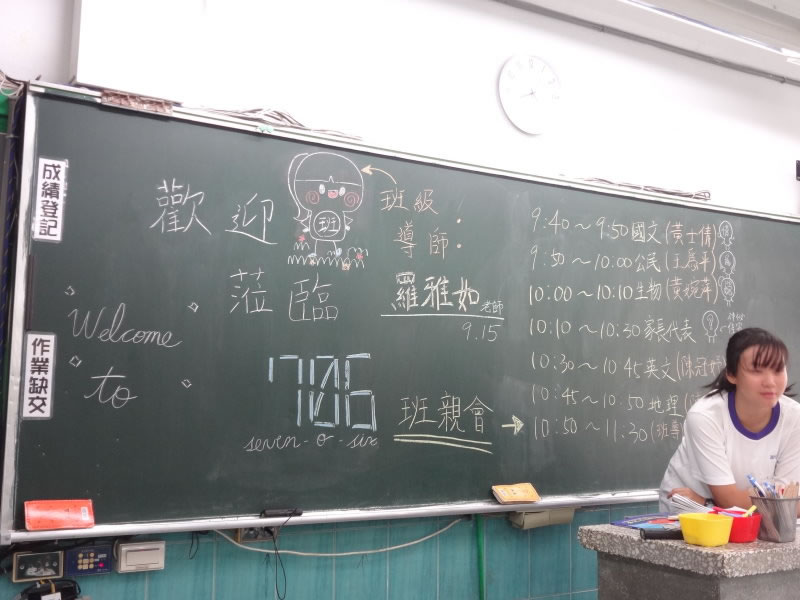 成績登記
作業缺交
歡迎
蒞臨
Welcome
to
班
班級
導師：
羅雅如老師
9.15
706
seven-o-six
班親會
9:40～9:50國文(黃士倩)
9:50～10:00公民(王
10:00～10:10生物(黃婉
10:10～10:30家長代表
10:30～10:45英文(陳冠
10:45～10:50地理(
10:50～11:30(班導